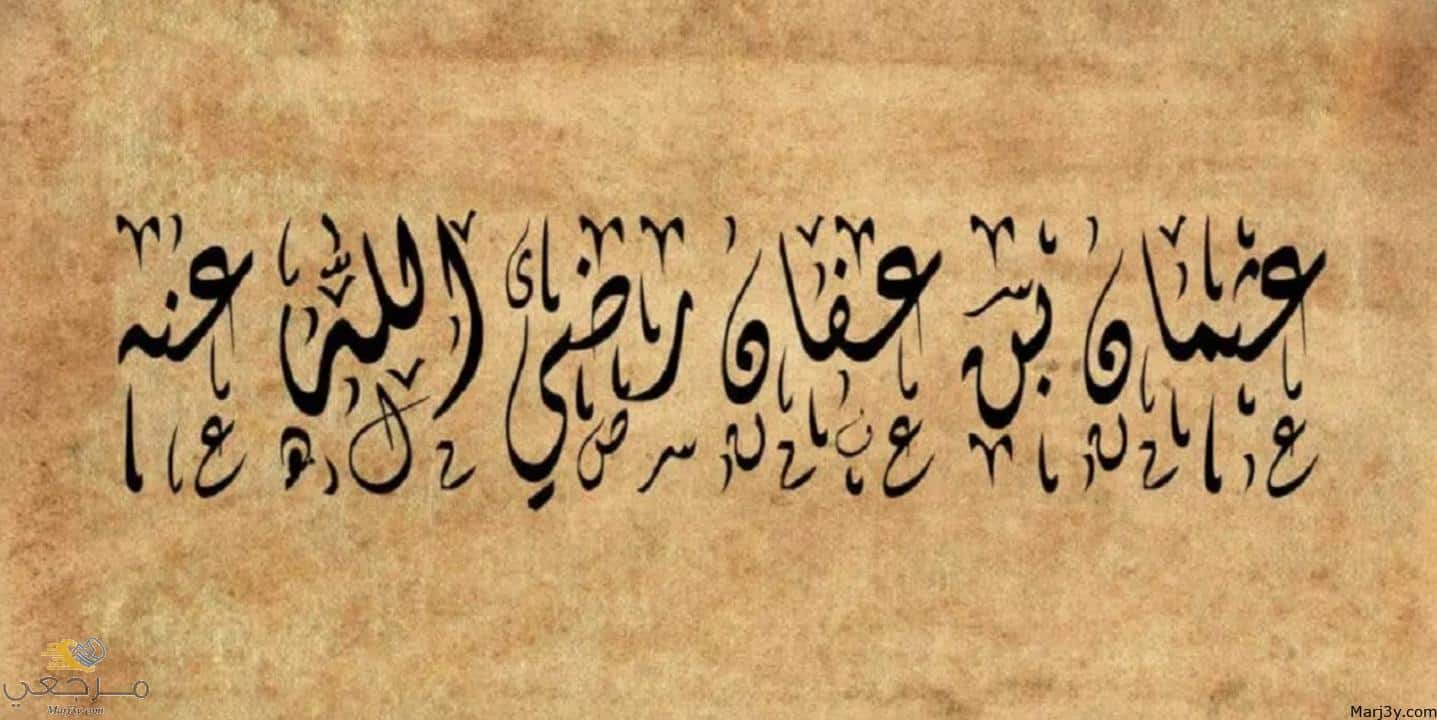 عثمان بن عفان رضي الله عنه
مرجعي
Marj3y.com
Marj3y.com